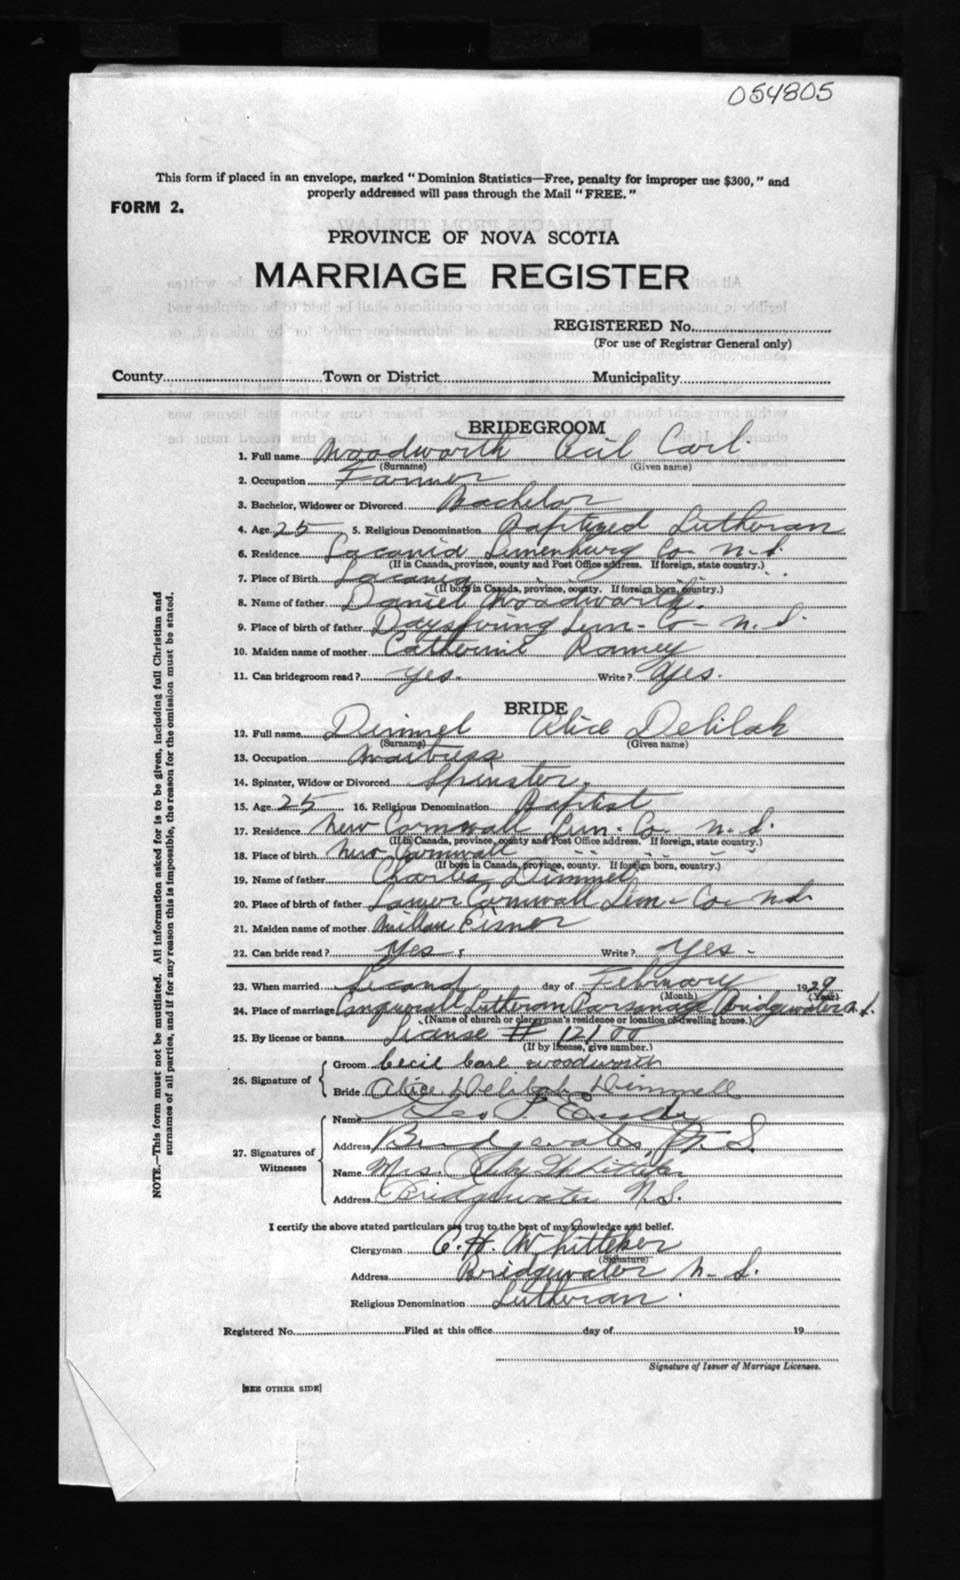 054805
This form if placed in an envelope, marked "Dominion Statistics—Free, penalty for improper use $300," and
properly addressed will pass through the Mail "FREE."
FORM 2.
PROVINCE OF NOVA SCOTIA
MARRIAGE REGISTER
REGISTERED No.
(For use of Registrar General only)
County Town or District Municipality
BRIDEGROOM
1. Full name Woodworth Cecil Carl
(Surname) (Given name)
2. Occupation Farmer
3. Bachelor, Widower or Divorced Bachelor
4. Age 25 5. Religious Denomination Baptized Lutheran
6. Residence Lacania Lunenburg Co- N.S.
(If in Canada, province, county and Post Office address. If foreign, state country.)
7. Place of Birth Lacania
(If born in Canada, province, county. If foreign born, country.)
8. Name of father Daniel Woodworth.
9. Place of birth of father Dayspring Lun- Co- N.S.
10. Maiden name of mother Catherine Ramey
11. Can bridegroom read? Yes. Write? Yes.
BRIDE
12. Full name Dimmel Alice Delilah
(Surname) (Given name)
13. Occupation Waitress
14. Spinster, Widow or Divorced Spinster.
15. Age 25 16. Religious Denomination Baptist
17. Residence New Cornwall Lun- Co- N.S.
(If in Canada, province, county and Post Office address. If foreign, state country.)
18. Place of birth New Cornwall
(If born in Canada, province, county. If foreign born, country.)
19. Name of father Charles Dimmel
20. Place of birth of father Lower Cornwall Lun- Co- N.S.
21. Maiden name of mother Eisnor
22. Can bride read? Yes Write? Yes-
23. When married Second day of February 1929
(Month) (Year)
24. Place of marriage Conquerall Lutheran Parsonage Bridgewater N.S.
(Name of church or clergyman's residence or location of dwelling house.)
25. By license or banns License # 12100
(If by license, give number.)
26. Signature of
Groom Cecil Carl Woodworth
Bride Alice Delilah Dimmell
27. Signatures of Witnesses
Name Geo
Address Bridgewater, N.S.
Name Mrs.
Address Bridgewater N.S.
I certify the above stated particulars are true to the best of my knowledge and belief.
Clergyman C. H. Whitteker
(Signature)
Address Bridgewater N.S.
Religious Denomination Lutheran.
Registered No. Filed at this office day of 19
Signature of Issuer of Marriage Licenses.
[SEE OTHER SIDE]
NOTE.—This form must not be mutilated. All information asked for is to be given, including full Christian and
surnames of all parties, and if for any reason this is impossible, the reason for the omission must be stated.